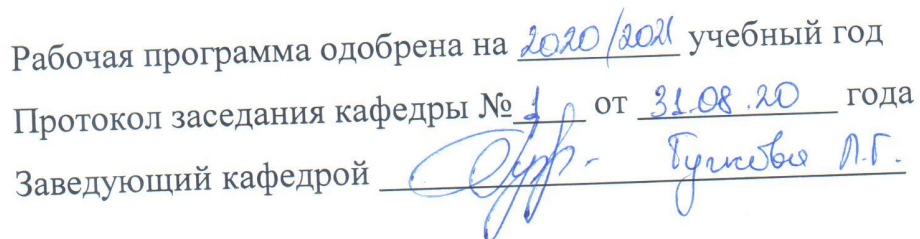 Рабочая программа одобрена на 2020/2021 учебный год
Протокол заседания кафедры № 1 от 31.08.20 года
Заведующий кафедрой Тучкова Л.Г.